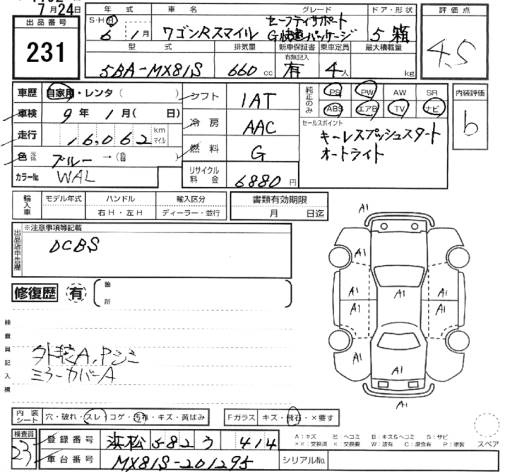 7月24日
出品番号
231
年式 車名 グレード ドア・形状 評価点
S・H・R 6年 1月 ワゴンRスマイル セーフティサポート
G 快適パッケージ 5 箱 4.5
型式 排気量 新車保証書 有無記入 乗車定員 最大積載量
5BA-MX81S 660cc 有 4人 kg
車歴 自家用・レンタ( ) シフト 1AT 純正のみ PS PW AW SR 内装評価
車検 9年 1月( 日) 冷房 AAC ABS エアB TV ナビ b
走行 16,062 km マイル 燃料 G セールスポイント
色 ブルー→( ) リサイクル料金 6880円 キーレスプッシュスタート
カラーNo. WAL オートライト
輸入車 モデル年式 ハンドル 輸入区分 書類有効期限
年 右H・左H ディーラー・並行 月 日迄
※注意事項等記載
DCBS
修復歴 有 箇所
検査員記入欄
外装A,Pジミ
ミラーカバーA
A1
A1
A1 A1 A1
A1 A1 A1
A1
内装シート 穴・破れ・スレ・コゲ・汚れ・キズ・黄ばみ Fガラス キズ・飛石・×要す
検査員 23
登録番号 浜松 582 う 414
車台番号 MX81S-201295 シリアルNo.
スペア